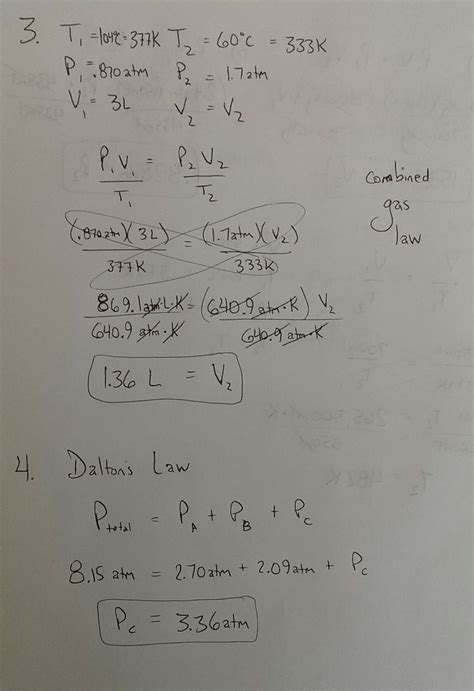 3. T₁ = 104°C = 377K T₂ = 60°C = 333K
P₁ = .870atm P₂ = 1.7atm
V₁ = 3L V₂ = V₂
P₁V₁/T₁ = P₂V₂/T₂
combined
gas
law
(.870atm)(3L)/377K = (1.7atm)(V₂)/333K
869.1atm·L·K/640.9 atm·K = (640.9 atm·K) V₂/640.9 atm·K
1.36 L = V₂
4. Dalton's Law
P total = P_A + P_B + P_C
8.15 atm = 2.70atm + 2.09atm + P_C
P_C = 3.36atm